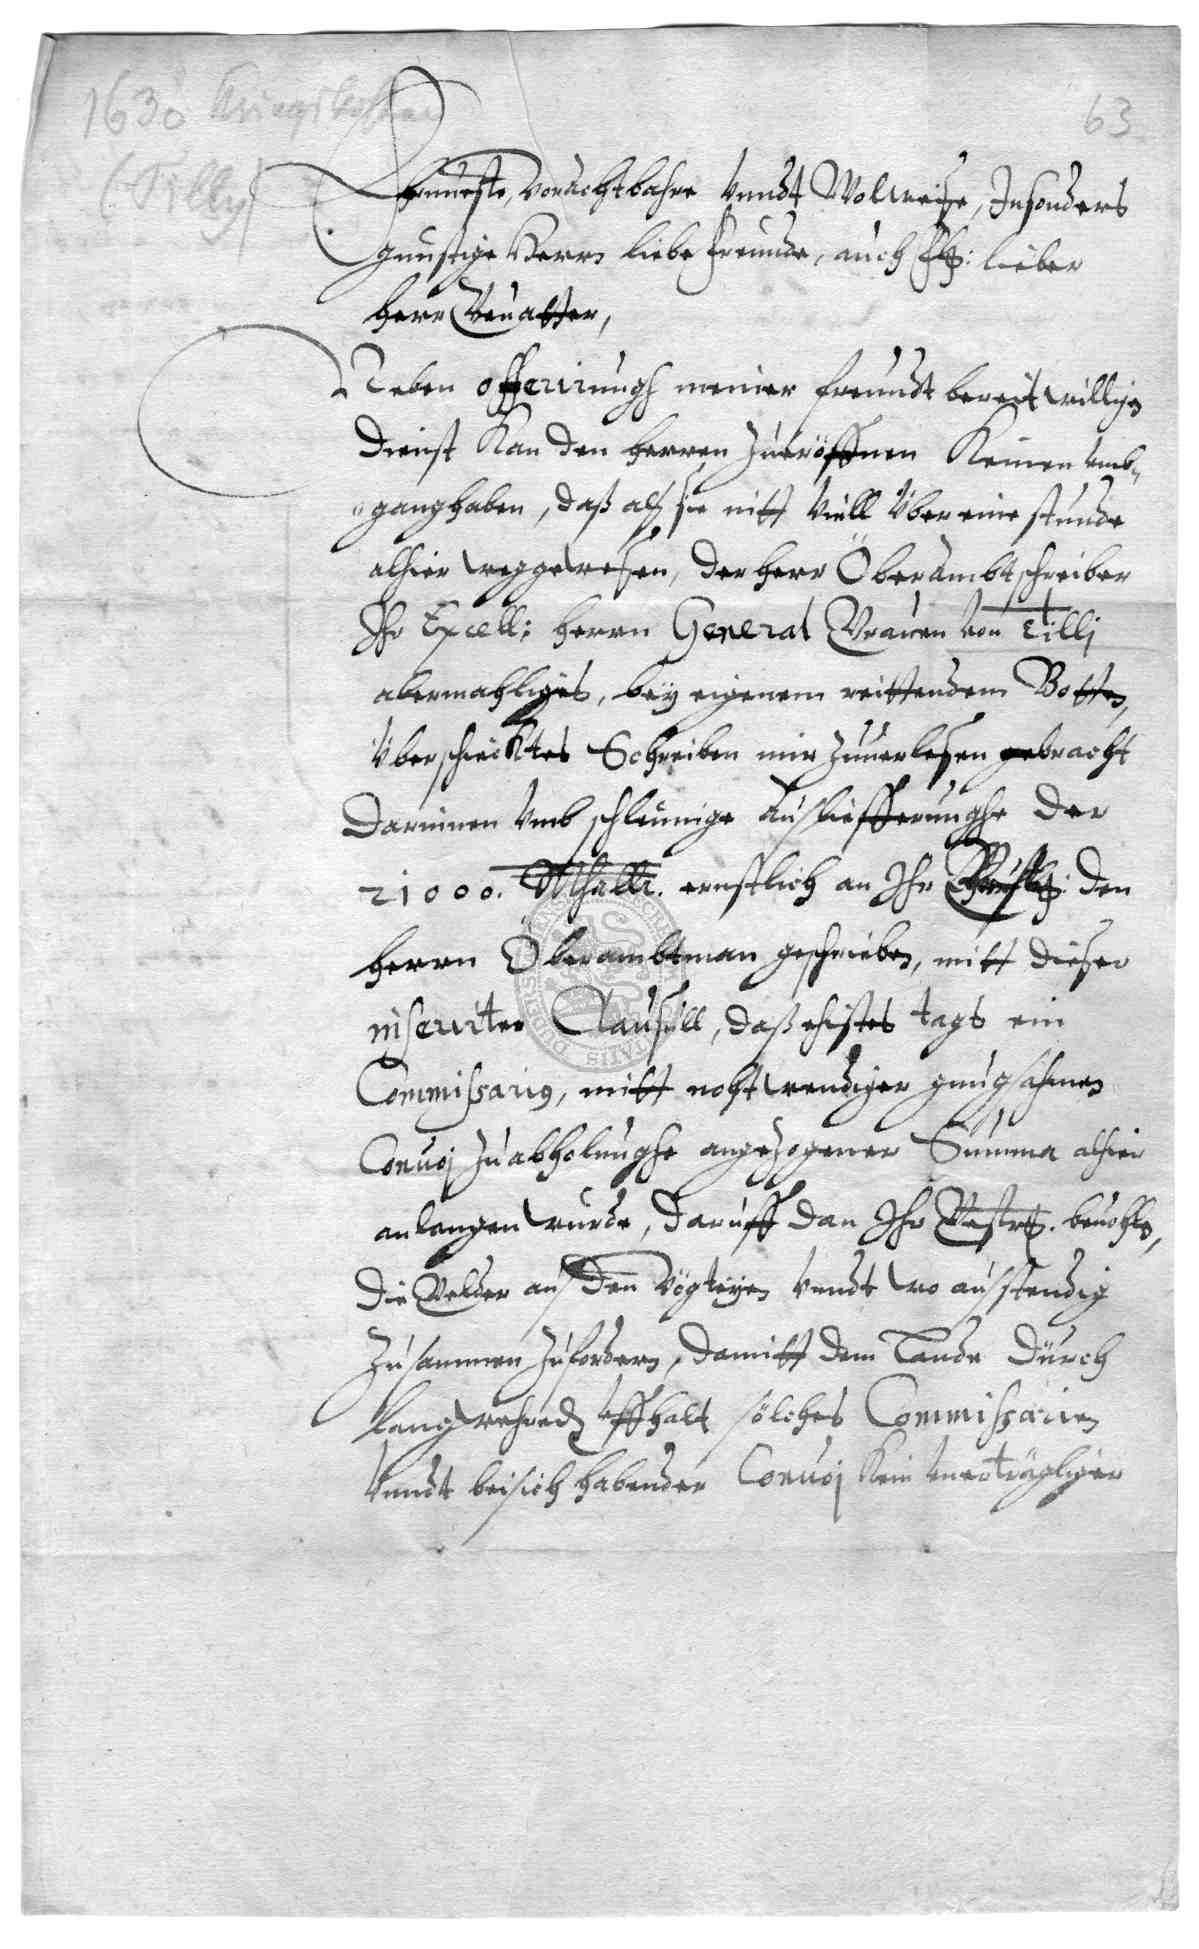 1630 Kriegskosten
63
(Tilly)
Ehrnueste, vorachtbahre vnndt Wolweise, Insonders
gunstige Herrn liebe freunde, auch lieber
Herr Geuatter,
Neben offerirungh meiner freundt bereitwilligen
Dienst kan den herren zueröffnen keinen vmb-
gang haben, daß alß sie nitt viell über eine stunde
alhier weggewesen, der herr Oberambtschreiber
Ihr Excell: herrn General Grauen von Tilli
abermahliges, bey eigenem reittendem Botten,
überschicktes Schreiben mir zuuerlesen gebracht
Darinnen vmb schleunige außliefferunghe der
21000. Rthallr. ernstlich an Ihr den
herrn Oberambtman geschrieben, mitt dieser
inserirter Clausull, daß ehistes tags ein
Commissarius, mitt nohtwendiger gnugsahmen
Conuoj zu abholunghe angezogener Summa alhier
anlangen wurde, daruff dan Ihr Gestr. beuohlen,
die Gelder auß den Vögteyen vnndt wo außstendig
zusammen zufordern, damitt dem Lande durch
langwehrend vffhalt solches Commissarien
vnndt beisich habender Conuoj kein vnerträgliger